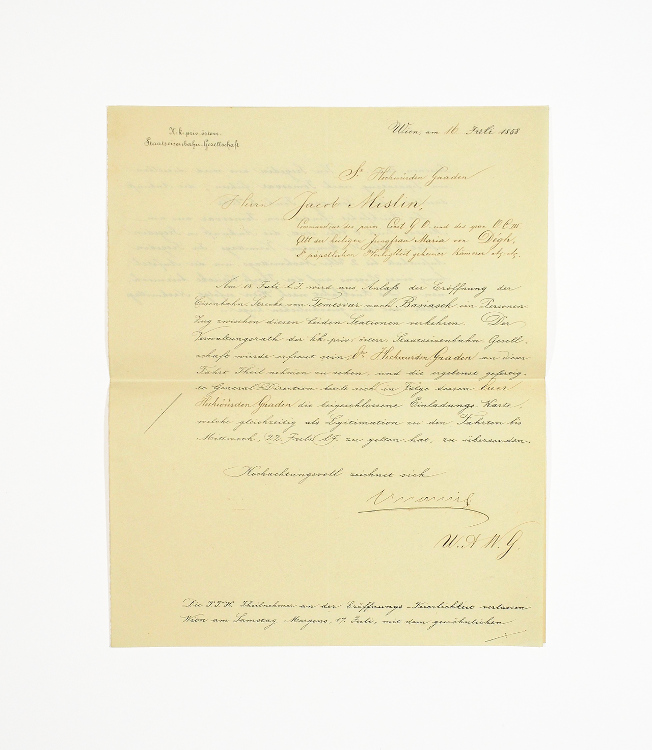 K. k. priv. österr.
Staatseisenbahn-Gesellschaft
Wien, am 16 Juli 1858
Sr Hochwürden Gnaden
Herrn Jacob Mislin,
Commandeur des päm. Cxxl G O. und des
Abt der heiligen Jungfrau Maria von Degh,
Sr apostolischen Heiligkeit geheimer Kämmerer etc. etc.
Am 18 Juli l. J. wird aus Anlaß der Eröffnung der
Eisenbahn-Strecke von Temesvar nach Basiasch ein Personen-
Zug zwischen diesen beiden Stationen verkehren. Der
Verwaltungsrath der kk. priv. österr. Staatseisenbahn Gesell-
schaft würde erfreut sein, Er. Hochwürden Gnaden an dieser
Fahrt Theil nehmen zu sehen, und die ergebenst gefertig-
te General-Direction beehrt sich in Folge dessen Euer
Hochwürden Gnaden die beigeschlossene Einladungs-Karte,
welche gleichzeitig als Legitimation zu den Fahrten bis
Mittwoch, 22. Juli l. J. zu gelten hat, zu übersenden.
Hochachtungsvoll zeichnet sich
Die P. T. H. Theilnehmer an der Eröffnungs-Feierlichkeit verlassen
Wien am Samstag Morgens, 17. Juli, mit dem gewöhnlichen